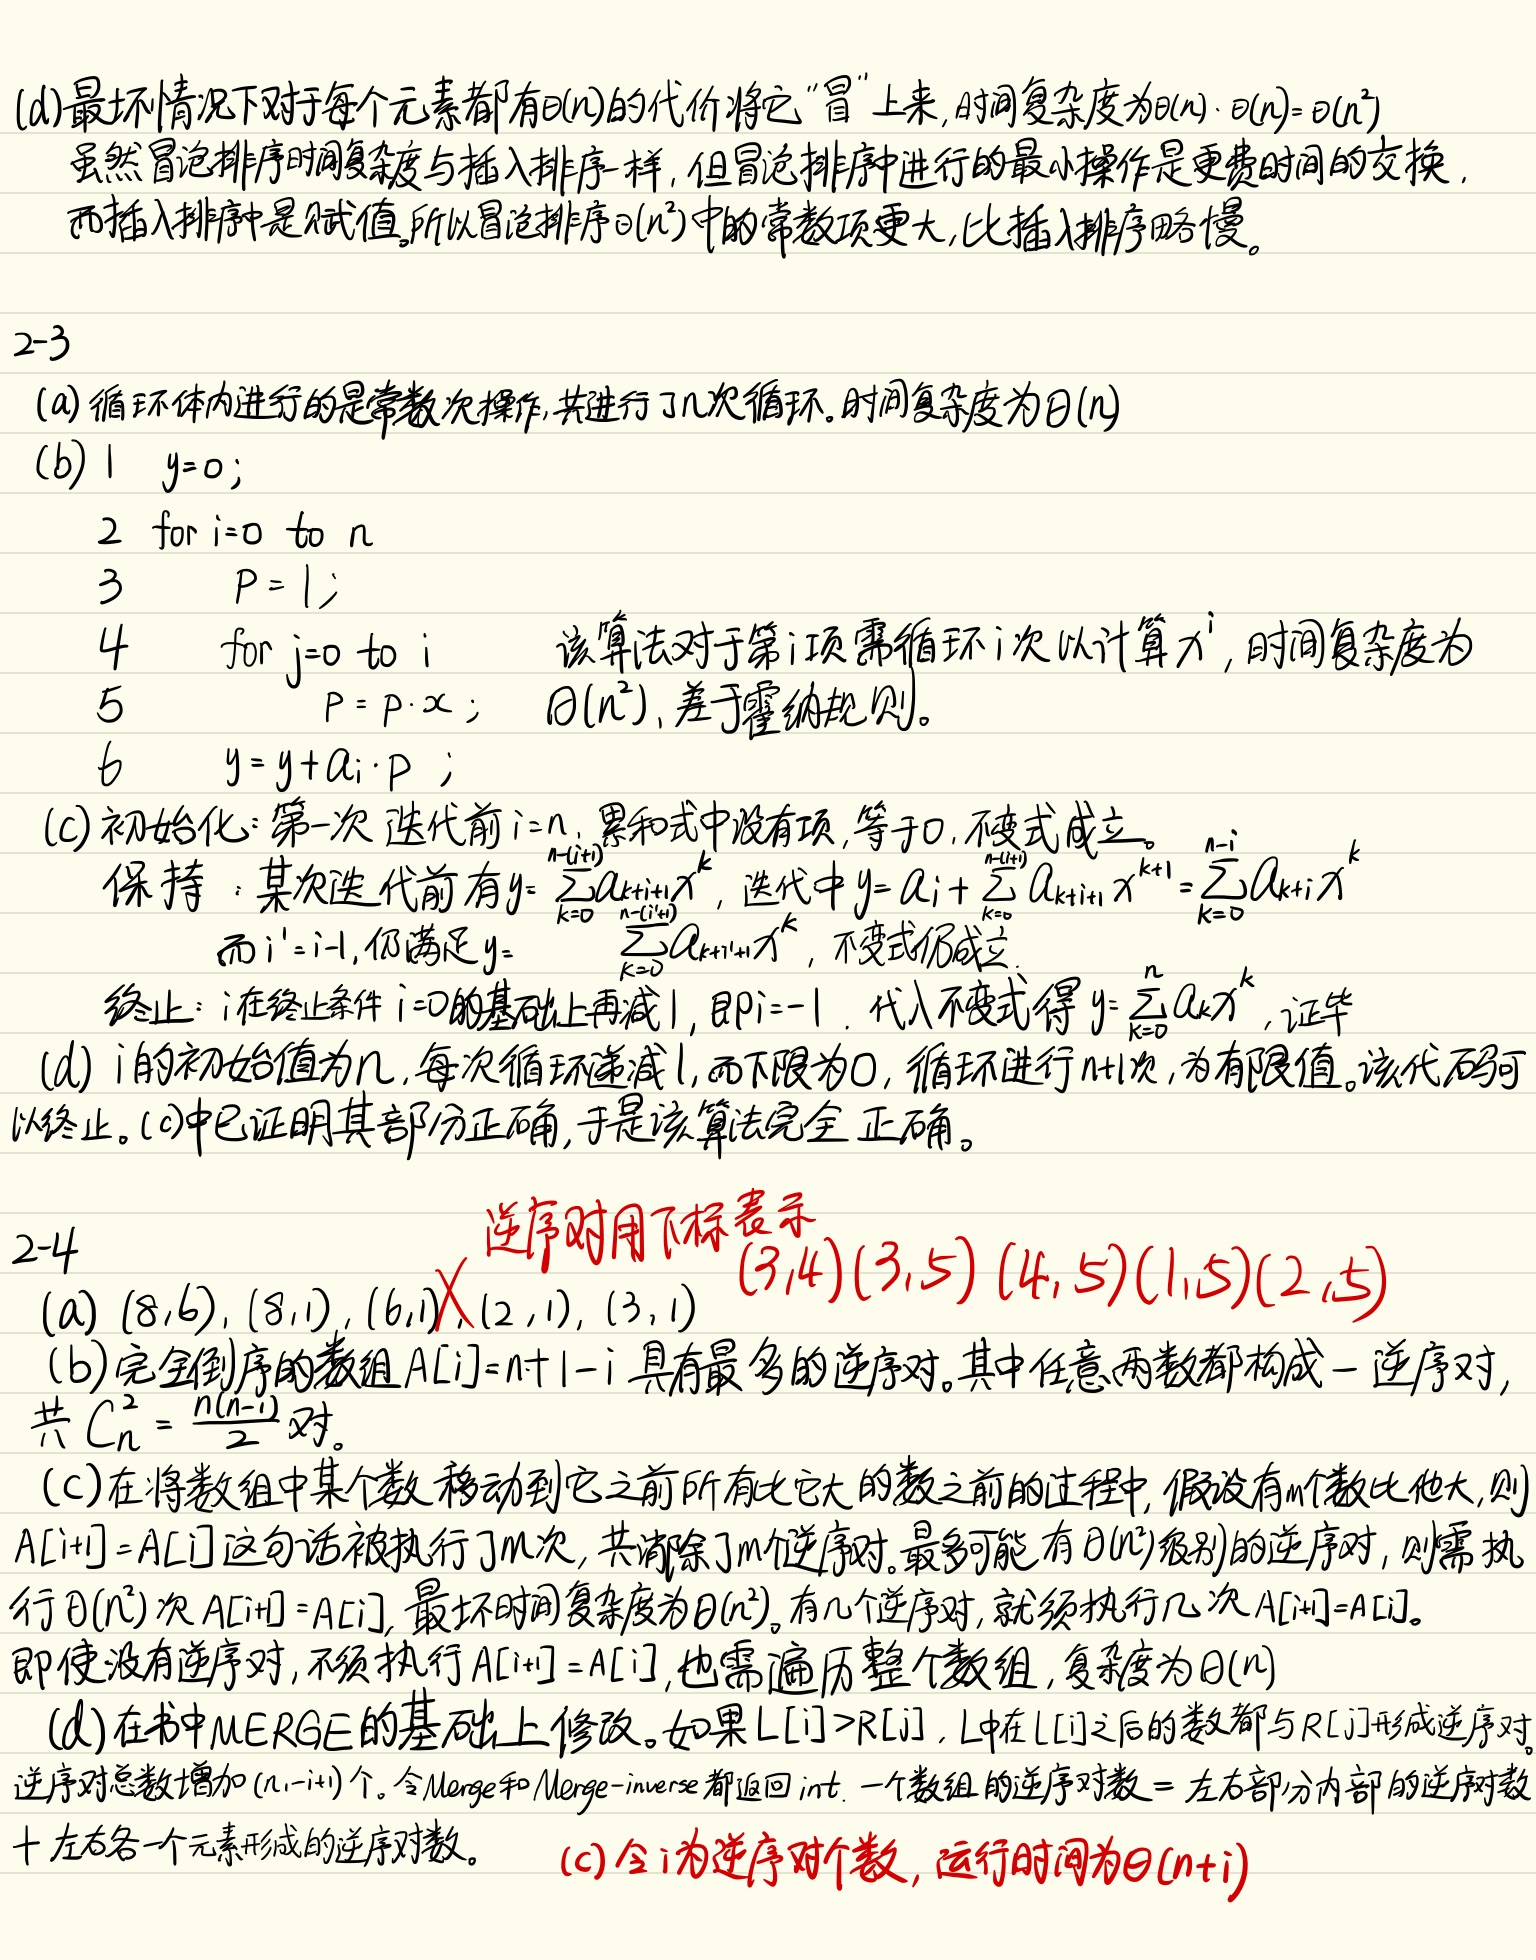 (d)最坏情况下对于每个元素都有Θ(n)的代价将它“冒”上来,时间复杂度为Θ(n)·Θ(n)=Θ(n²)
虽然冒泡排序时间复杂度与插入排序一样,但冒泡排序中进行的最小操作是更费时间的交换,
而插入排序中是赋值。所以冒泡排序Θ(n²)中的常数项更大,比插入排序略慢。
2-3
(a)循环体内进行的是常数次操作,共进行了n次循环。时间复杂度为Θ(n)
(b) 1 y=0;
2 for i=0 to n
3 P=1;
4 for j=0 to i 该算法对于第i项需循环i次以计算xⁱ,时间复杂度为
5 P=P·x; Θ(n²),差于霍纳规则。
6 y=y+aᵢ·P ;
(c)初始化:第一次迭代前i=n,累和式中没有项,等于0,不变式成立。
保持:某次迭代前有y=∑_{k=0}^{n-(i+1)} a_{k+i+1}x^k, 迭代中y=a_i+∑_{k=0}^{n-(i+1)} a_{k+i+1}x^{k+1}=∑_{k=0}^{n-i} a_{k+i}x^k
而i'=i-1,仍满足y=∑_{k=0}^{n-(i'+1)} a_{k+i'+1}x^k, 不变式仍成立.
终止:i在终止条件i=0的基础上再减1,即i=-1. 代入不变式得y=∑_{k=0}^{n} a_k x^k,证毕
(d) i的初始值为n,每次循环递减1,而下限为0,循环进行n+1次,为有限值。该代码可
以终止。(c)中已证明其部分正确,于是该算法完全正确。
逆序对用下标表示
2-4
(3,4)(3,5)(4,5)(1,5)(2,5)
(a) (8,6), (8,1), (6,1), (2,1), (3,1)
(b)完全倒序的数组A[i]=n+1-i具有最多的逆序对。其中任意两数都构成一逆序对,
共C_n^2=n(n-1)/2对。
(c)在将数组中某个数移动到它之前所有比它大的数之前的过程中,假设有m个数比他大,则
A[i+1]=A[i]这句话被执行了m次,共消除了m个逆序对。最多可能有Θ(n²)级别的逆序对,则需执
行Θ(n²)次A[i+1]=A[i],最坏时间复杂度为Θ(n²)。有几个逆序对,就须执行几次A[i+1]=A[i]。
即使没有逆序对,不须执行A[i+1]=A[i],也需遍历整个数组,复杂度为Θ(n)
(d)在书中MERGE的基础上修改。如果L[i]>R[j],L中在L[i]之后的数都与R[j]形成逆序对。
逆序对总数增加(n₁-i+1)个。令Merge和Merge-inverse都返回int. 一个数组的逆序对数=左右部分内部的逆序对数
+左右各一个元素形成的逆序对数。
(c)令i为逆序对个数,运行时间为Θ(n+i)